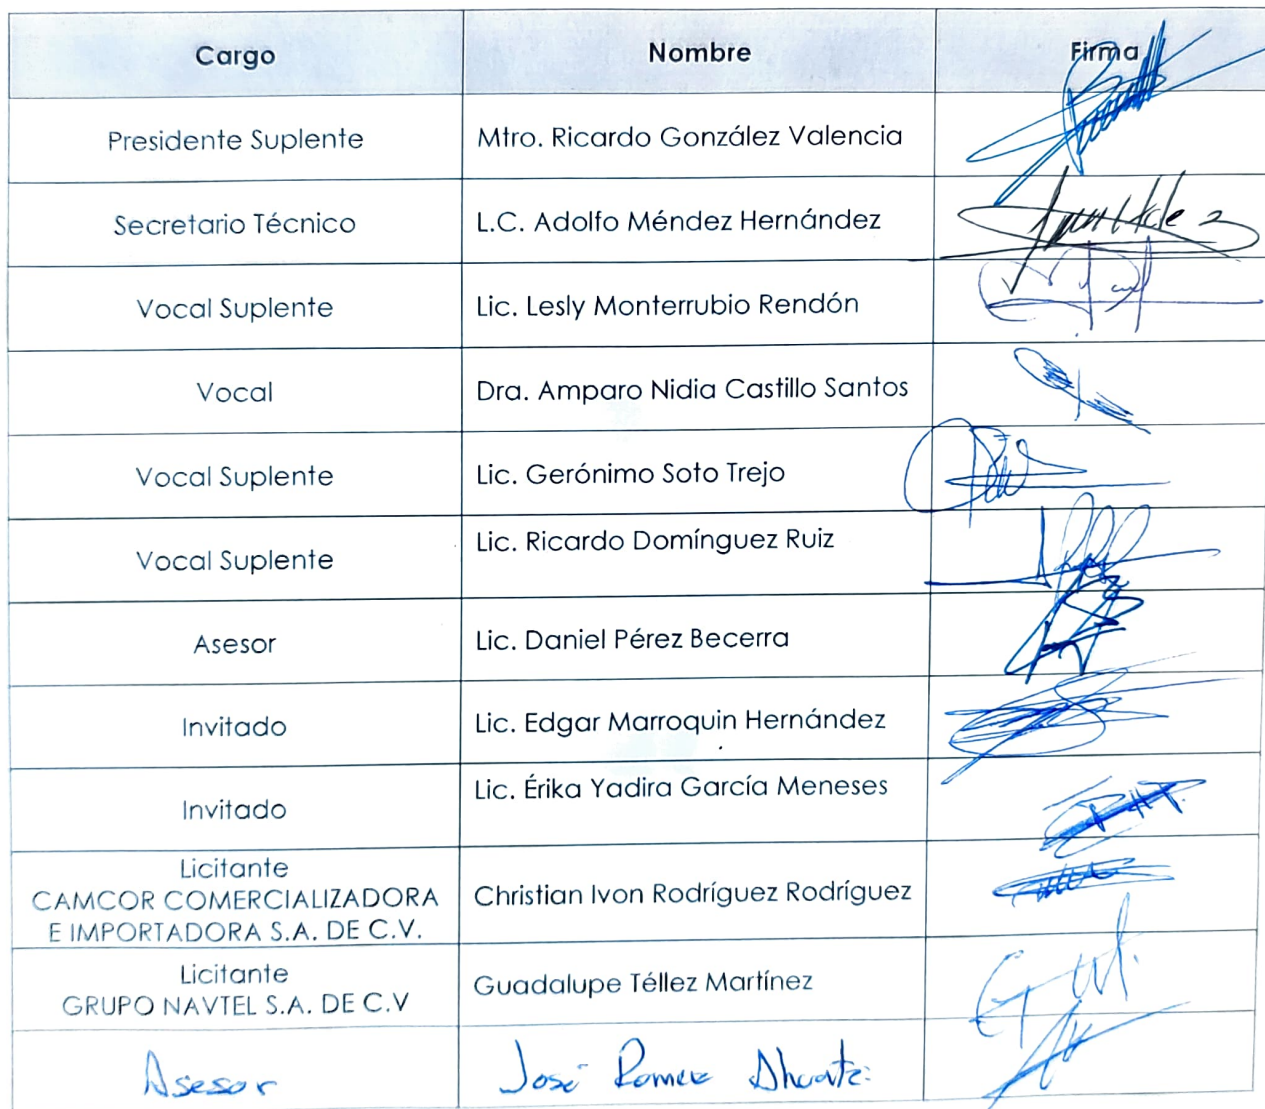 Cargo Nombre Firma
Presidente Suplente Mtro. Ricardo González Valencia
Secretario Técnico L.C. Adolfo Méndez Hernández
Vocal Suplente Lic. Lesly Monterrubio Rendón
Vocal Dra. Amparo Nidia Castillo Santos
Vocal Suplente Lic. Gerónimo Soto Trejo
Vocal Suplente Lic. Ricardo Domínguez Ruiz
Asesor Lic. Daniel Pérez Becerra
Invitado Lic. Edgar Marroquin Hernández
Invitado Lic. Érika Yadira García Meneses
Licitante
CAMCOR COMERCIALIZADORA
E IMPORTADORA S.A. DE C.V.
Christian Ivon Rodríguez Rodríguez
Licitante
GRUPO NAVTEL S.A. DE C.V
Guadalupe Téllez Martínez
Asesor José